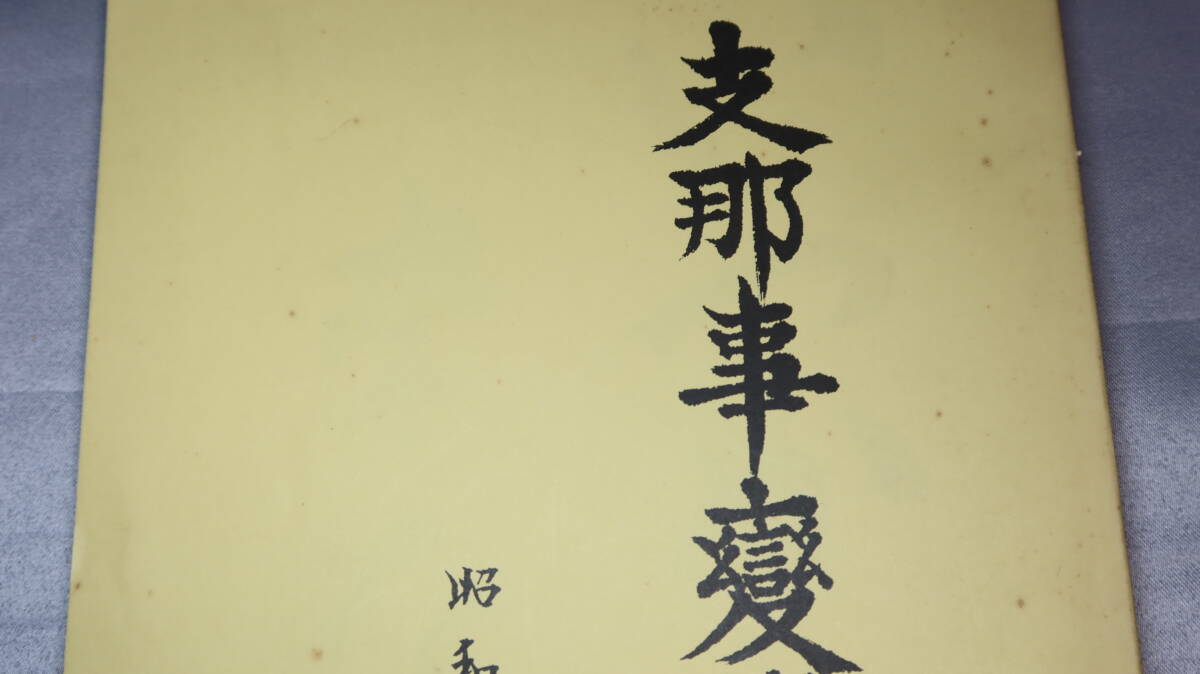 支那事變
昭和